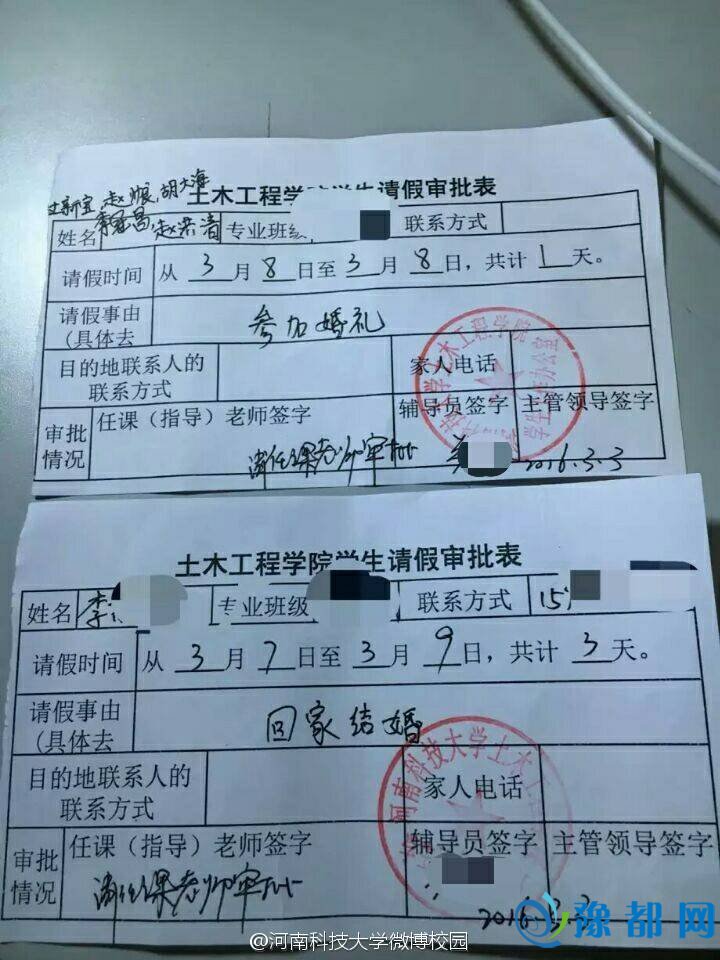 赵恨,胡大海
土木工程学院学生请假审批表
姓名 赵荣清 专业班级 联系方式
请假时间 从 3 月 8 日至 3 月 8 日，共计 1 天。
请假事由 参加婚礼
(具体去
目的地联系人的 家人电话
联系方式
任课（指导）老师签字 辅导员签字 主管领导签字
审批
情况 请任课老师审批 2016.3.3
土木工程学院学生请假审批表
姓名 李 专业班级 联系方式 15
请假时间 从 3 月 7 日至 3 月 9 日，共计 3 天。
请假事由 回家结婚
(具体去
目的地联系人的 家人电话
联系方式
河南科技大学土木工程
任课（指导）老师签字 辅导员签字 主管领导签字
审批
情况 请任课老师审批
2016.3.3
豫都网
@河南科技大学微博校园